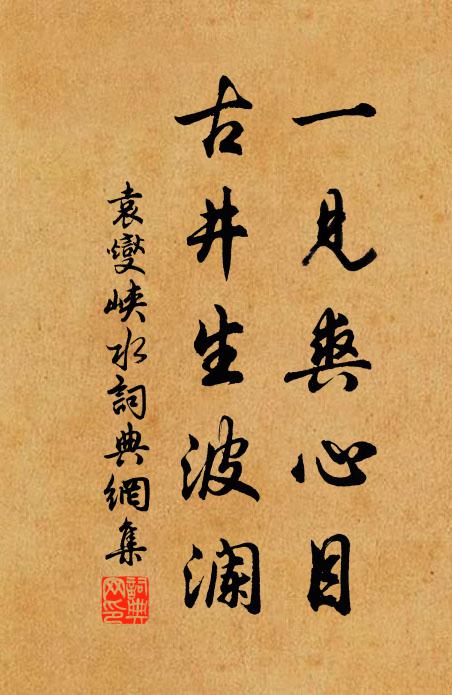 一見爽心目
古井生波瀾
袁燮峽水詞典網集
詞典網印